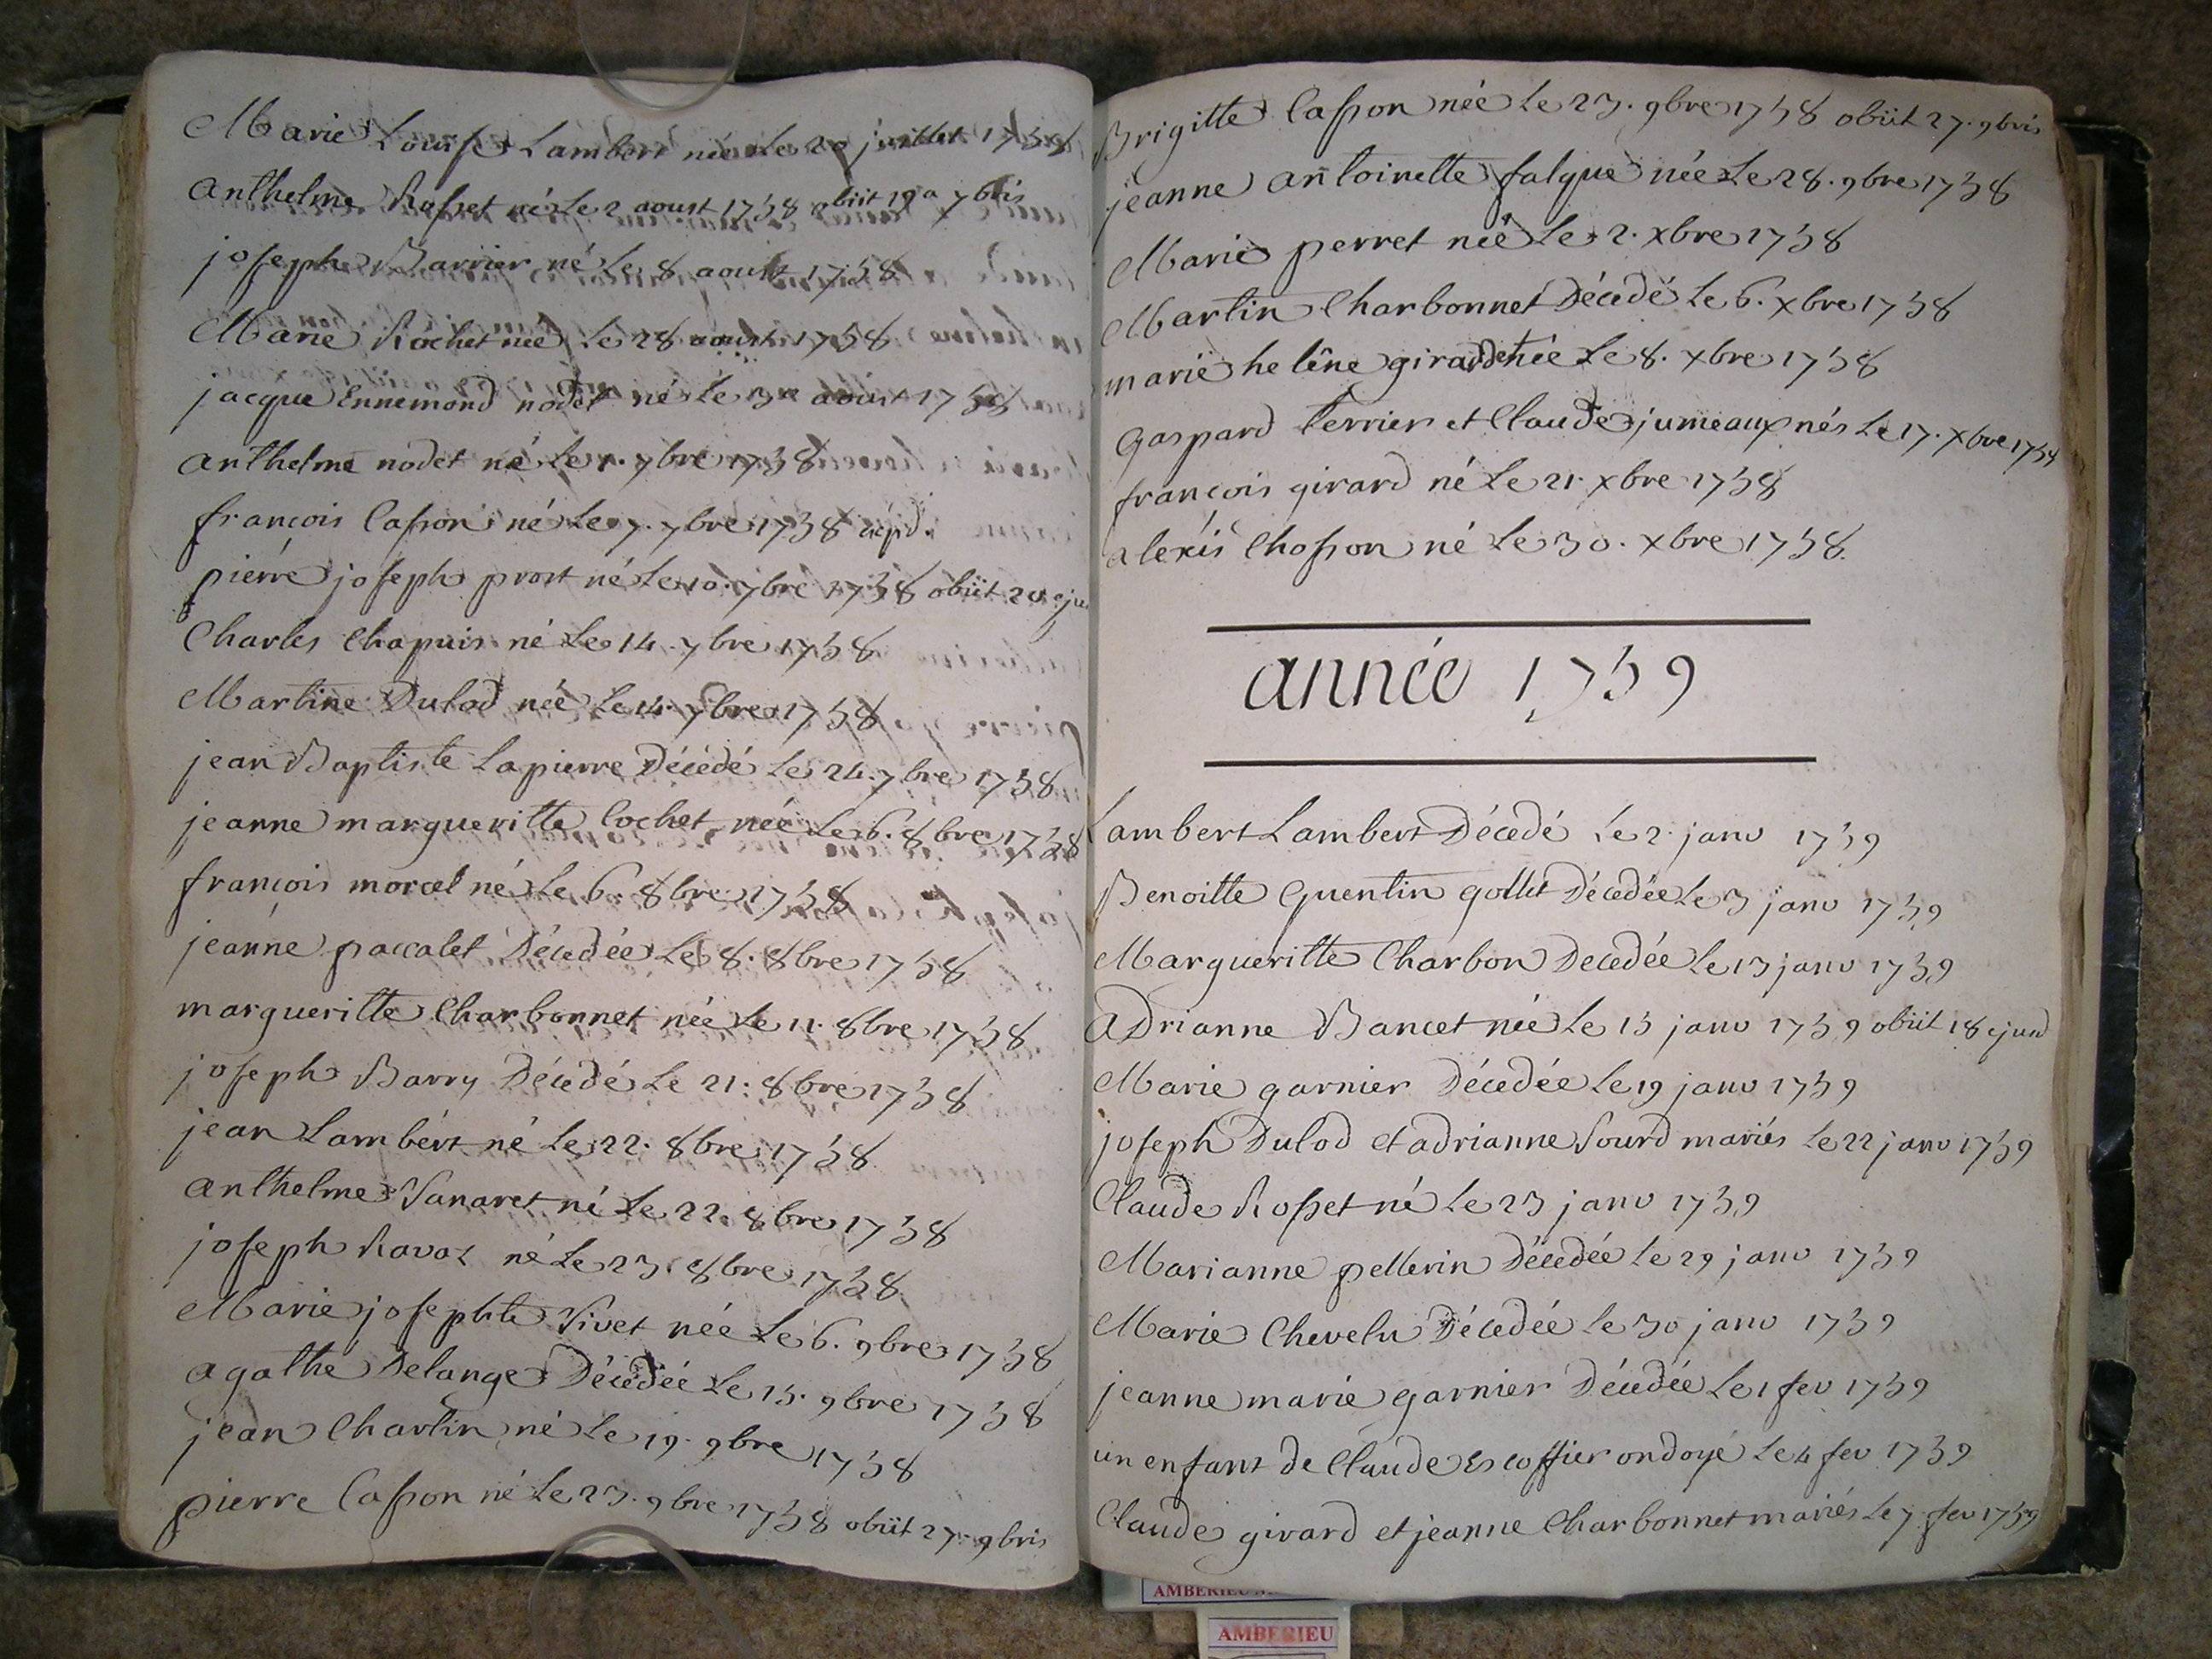 Marie Louise Lambert née Le 20 juillet 1738
anthelme Rosset né Le 2 aoust 1738 obiit 19a 7bris
joseph Barrier né Le 8 aoust 1738
Marie Rochet née Le 28 aoust 1738
jacque Ennemond nodet né Le 30 aoust 1738
anthelme nodet né Le 1. 7bre 1738
françois Casson né Le 7. 7bre 1738
pierre joseph prost né Le 10. 7bre 1738 obiit 20 eju
Charles Chapuis né Le 14. 7bre 1738
Martine Dulod née Le 14. 7bre 1738
jean Baptiste Lapierre Décédé Le 24. 7bre 1738
jeanne margueritte Cochet née Le 6. 8bre 1738
françois morcel né Le 6. 8bre 1738
jeanne paccalet Décedée Le 8. 8bre 1738
margueritte Charbonnet née Le 11. 8bre 1738
joseph Barry Décedé Le 21. 8bre 1738
jean Lambert né Le 22. 8bre 1738
anthelme Vanaret né Le 22. 8bre 1738
joseph Ravaz né Le 23. 8bre 1738
Marie josephte Vivet née Le 6. 9bre 1738
agathe Delange Décedée Le 15. 9bre 1738
jean Charlin né Le 19. 9bre 1738
pierre Casson né Le 23. 9bre 1738 obiit 27. 9bris
Brigitte Casson née Le 23. 9bre 1738 obiit 27. 9bris
jeanne antoinette falque née Le 28. 9bre 1738
Marie perret née Le 2. xbre 1738
Martin Charbonnet Décedé Le 6. xbre 1738
marie helêne girardet née Le 8. xbre 1738
gaspard terrier et Claude jumeaux nés Le 17. xbre 1738
françois girard né Le 21. xbre 1738
alexis Chosson né Le 30. xbre 1738.
année 1739
Lambert Lambert Décedé Le 2. janv 1739
Benoitte quentin gollet Décedée Le 3 janv 1739
Margueritte Charbon Decedée Le 13 janv 1739
adrianne Bancet née Le 15 janv 1739 obiit 18 ejusd
Marie garnier Décedée Le 19 janv 1739
joseph Dulod et adrianne Sourd mariés Le 22 janv 1739
Claude Rosset né Le 23 janv 1739
Marianne pellerin Décedée Le 29 janv 1739
Marie Chevelu Décedée Le 30 janv 1739
jeanne marie garnier Décedée Le 1 fev 1739
un enfant de Claude Escoffier ondoyé Le 4 fev 1739
Claude girard et jeanne Charbonnet mariés Le 7 fev 1739
AMBERIEU
AMBERIEU